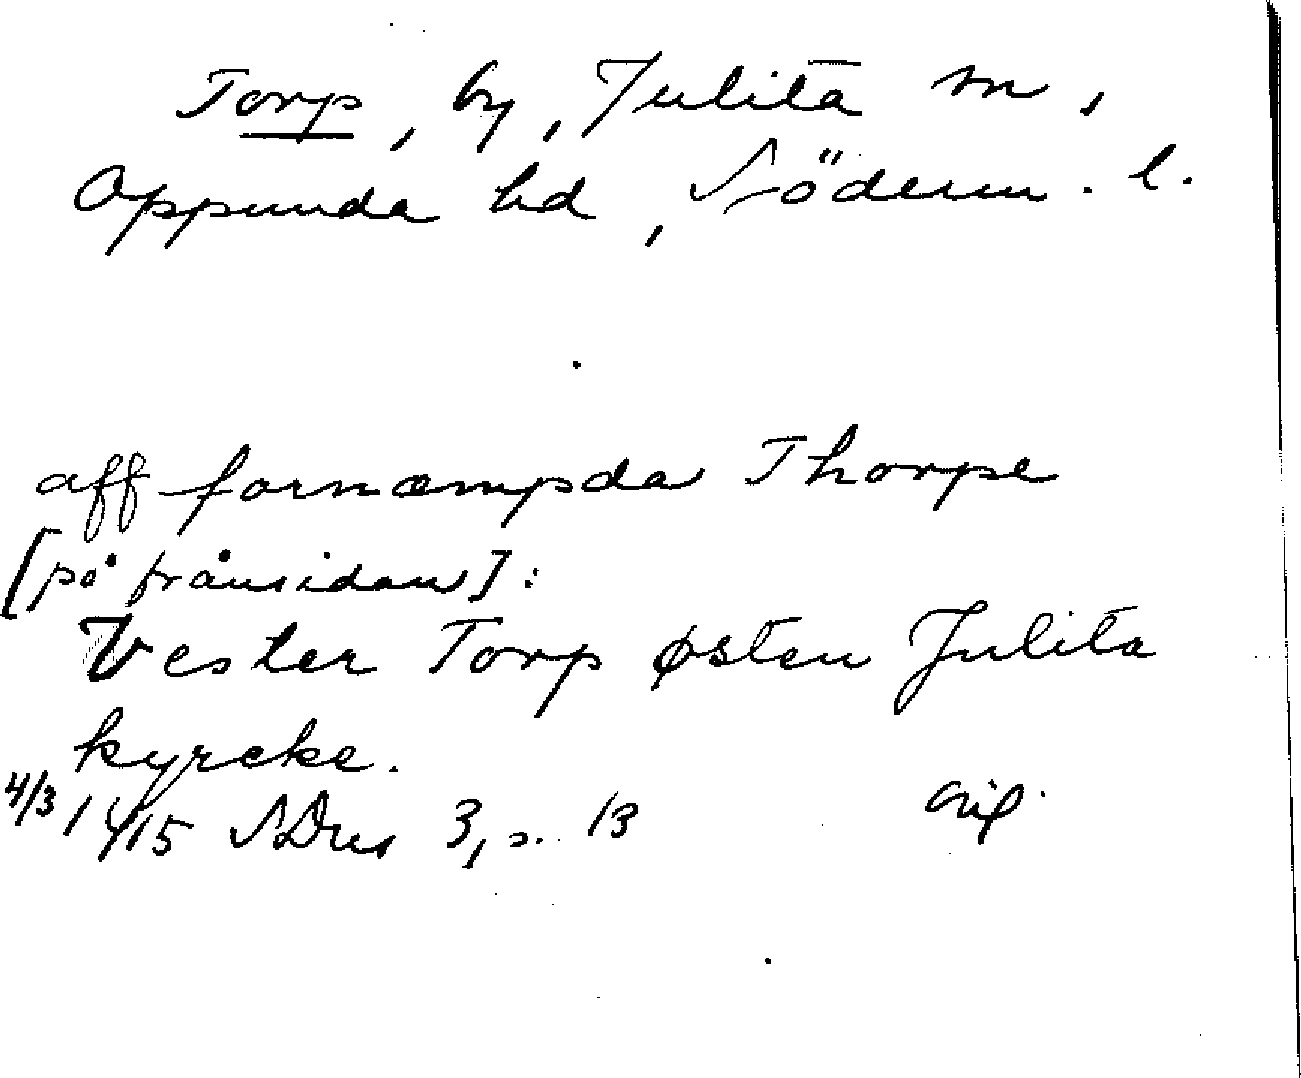 Torp, by, Julita sn,
Oppunda hd, Söderm. l.
aff fornæmpda Thorpe
[på frånsidan]:
Vester Torp østen Julita
kyrcke.
4/3 1415 SDns 3, s. 13 orig.